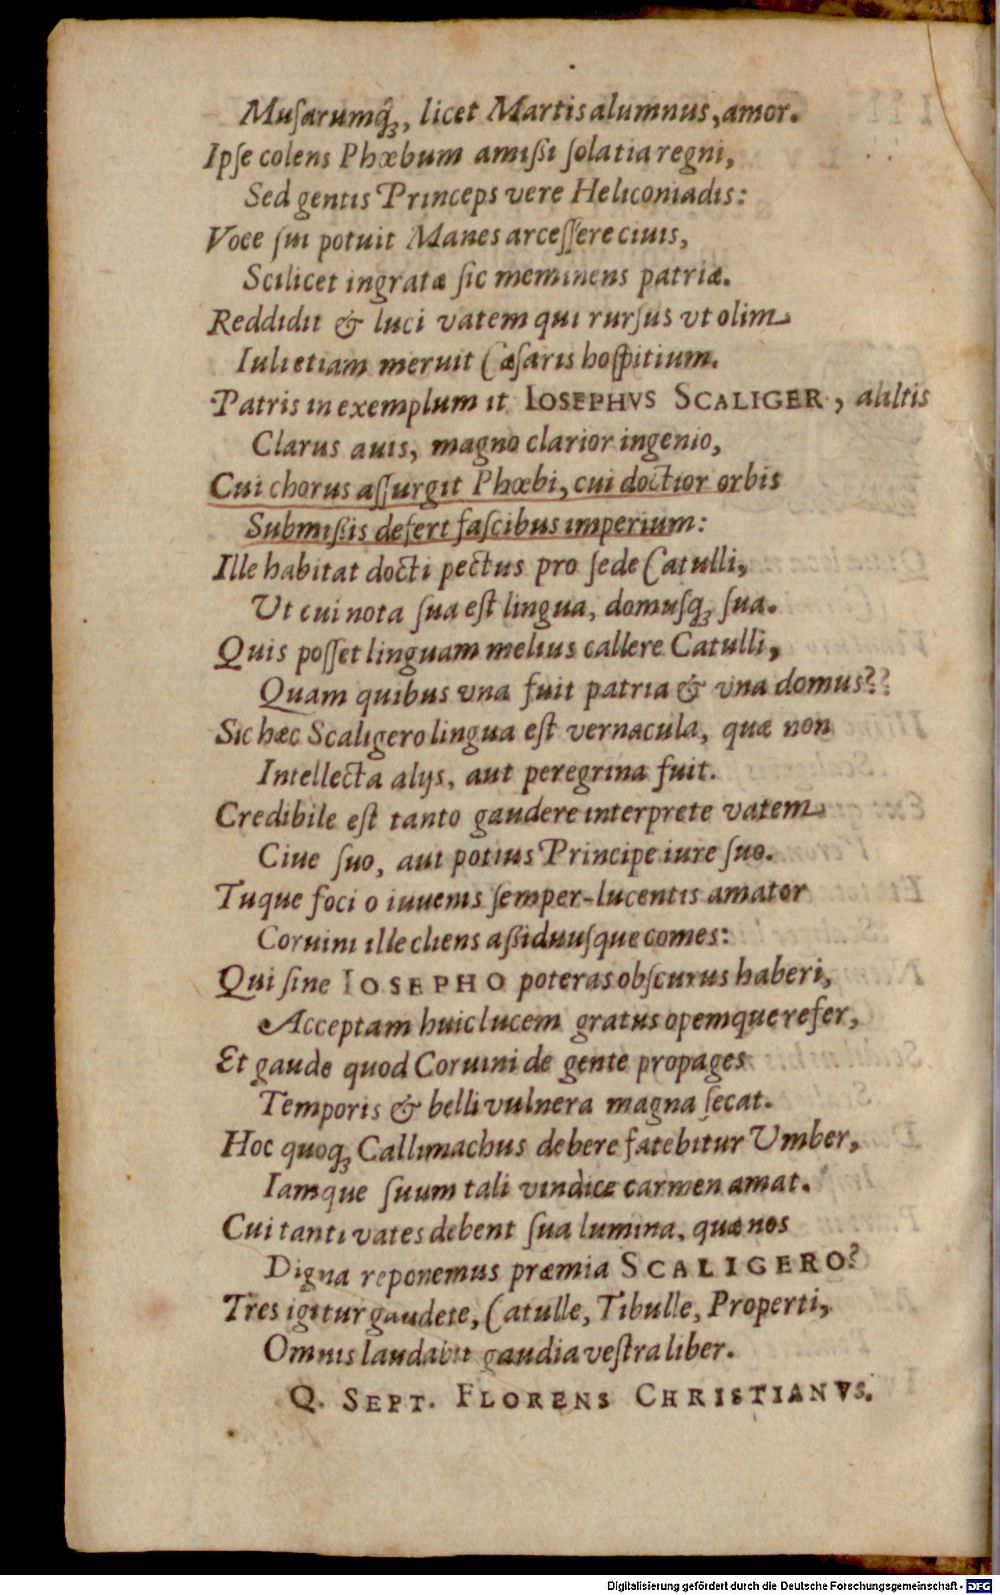 Muſarumq́ꝫ, licet Martis alumnus, amor.
Ipſe colens Phœbum amißi ſolatia regni,
Sed gentis Princeps vere Heliconiadis:
Voce ſui potuit Manes arceſſere ciuis,
Scilicet ingratæ ſic meminens patriæ.
Reddidit & luci vatem qui rurſus vt olim
Iuli etiam meruit Cæſaris hoſpitium.
Patris in exemplum it IOSEPHVS SCALIGER, ab altis
Clarus auis, magno clarior ingenio,
Cui chorus aſſurgit Phœbi, cui doctior orbis
Submißis defert faſcibus imperium:
Ille habitat docti pectus pro ſede Catulli,
Ut cui nota ſua eſt lingua, domuſqꝫ ſua.
Quis poſſet linguam melius callere Catulli,
Quam quibus vna fuit patria & vna domus??
Sic hæc Scaligero lingua eſt vernacula, quæ non
Intellecta alijs, aut peregrina fuit.
Credibile eſt tanto gaudere interprete vatem
Ciue ſuo, aut potius Principe iure ſuo.
Tuque foci o iuuenis ſemper-lucentis amator
Coruini ille cliens aßiduuſque comes:
Qui ſine IOSEPHO poteras obſcurus haberi,
Acceptam huic lucem gratus opemque refer,
Et gaude quod Coruini de gente propages
Temporis & belli vulnera magna ſecat.
Hoc quoqꝫ Callimachus debere fatebitur Vmber,
Iamque ſuum tali vindice carmen amat.
Cui tanti vates debent ſua lumina, quæ nos
Digna reponemus præmia SCALIGERO?
Tres igitur gaudete, Catulle, Tibulle, Properti,
Omnis laudabit gaudia veſtra liber.
Q. SEPT. FLORENS CHRISTIANVS.
Digitalisierung gefördert durch die Deutsche Forschungsgemeinschaft - DFG